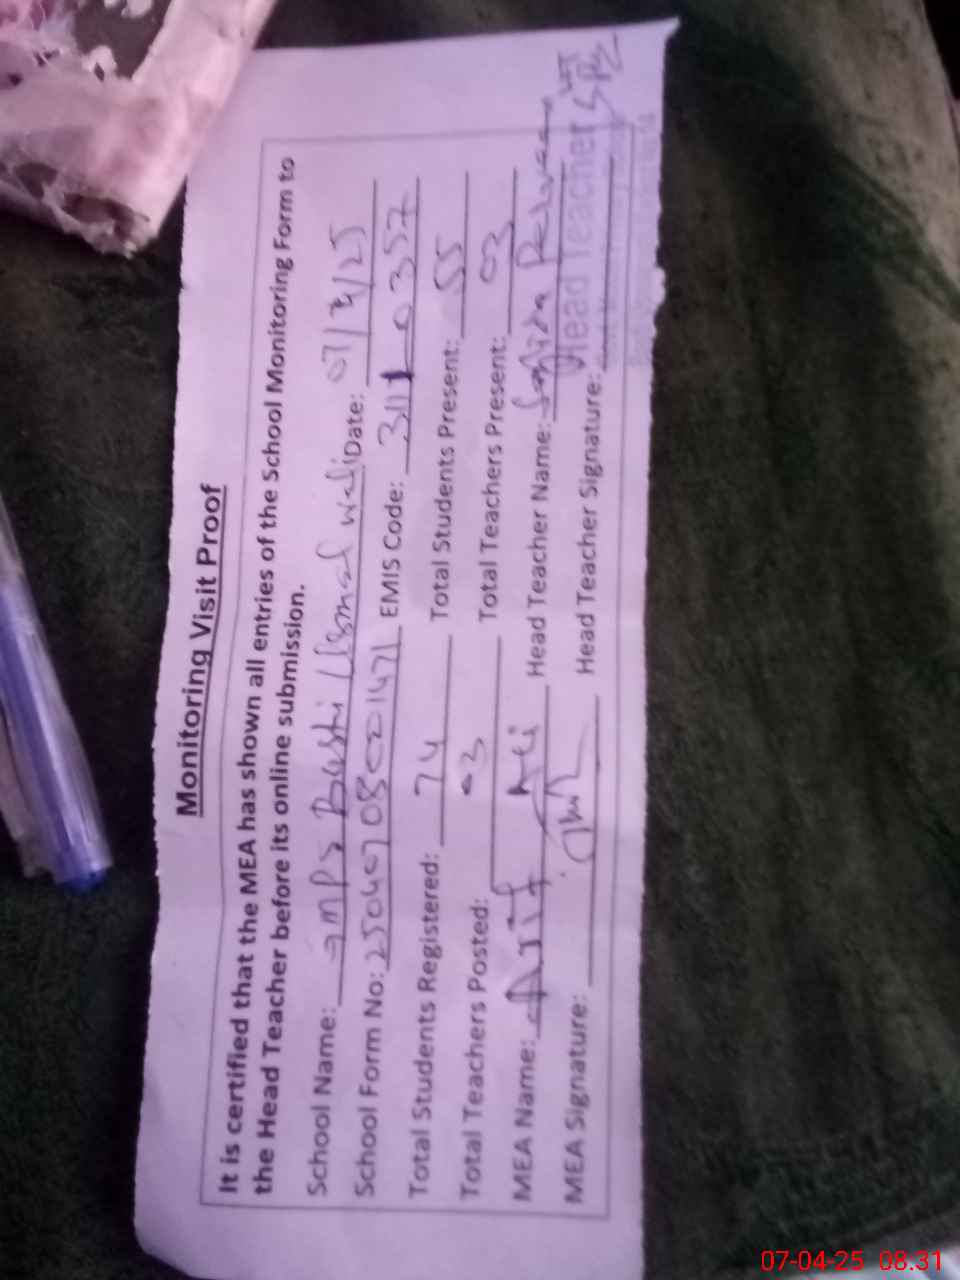 Monitoring Visit Proof
It is certified that the MEA has shown all entries of the School Monitoring Form to
the Head Teacher before its online submission.
School Name: GMPS Basti Wali Date: 07/4/25
School Form No: EMIS Code: 31110357
Total Students Registered: 74 Total Students Present: 55
Total Teachers Posted: 03 Total Teachers Present: 03
MEA Name: Arif Ali Head Teacher Name: Perveen
MEA Signature: Head Teacher Signature:
Head Teacher
07-04-25 08.31